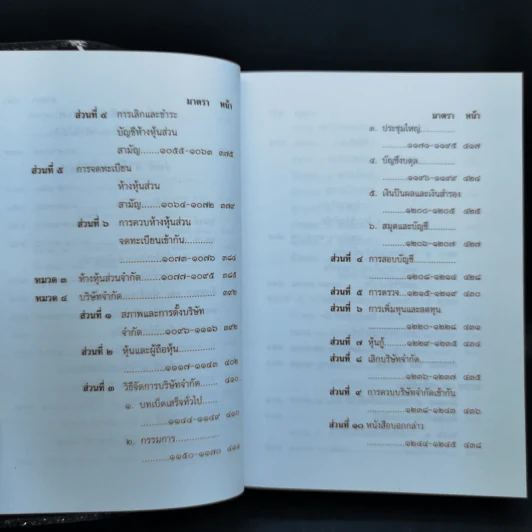 มาตรา หน้า
ส่วนที่ ๔ การเลิกและชำระ
บัญชีห้างหุ้นส่วน
สามัญ.......๑๐๕๕-๑๐๖๓ ๓๗๕
ส่วนที่ ๕ การจดทะเบียน
ห้างหุ้นส่วน
สามัญ.......๑๐๖๔-๑๐๗๒ ๓๗๙
ส่วนที่ ๖ การควบห้างหุ้นส่วน
จดทะเบียนเข้ากัน...........
.................๑๐๗๓-๑๐๗๖ ๓๘๔
หมวด ๓ ห้างหุ้นส่วนจำกัด......๑๐๗๗-๑๐๙๕ ๓๘๕
หมวด ๔ บริษัทจำกัด........................... ๓๙๒
ส่วนที่ ๑ สภาพและการตั้งบริษัท
จำกัด.......๑๐๙๖-๑๑๑๖ ๓๙๒
ส่วนที่ ๒ หุ้นและผู้ถือหุ้น...........
.................๑๑๑๗-๑๑๔๓ ๔๐๒
ส่วนที่ ๓ วิธีจัดการบริษัทจำกัด....... ๔๑๐
๑. บทเบ็ดเสร็จทั่วไป......
.........๑๑๔๔-๑๑๔๙ ๔๑๐
๒. กรรมการ................
.........๑๑๕๐-๑๑๗๐ ๔๑๑
มาตรา หน้า
๓. ประชุมใหญ่............
...........๑๑๗๑-๑๑๙๕ ๔๑๗
๔. บัญชีงบดุล.............
...........๑๑๙๖-๑๑๙๙ ๔๒๔
๕. เงินปันผลและเงินสำรอง
...........๑๒๐๐-๑๒๐๕ ๔๒๕
๖. สมุดและบัญชี..........
...........๑๒๐๖-๑๒๐๗ ๔๒๗
ส่วนที่ ๔ การสอบบัญชี...............
...............๑๒๐๘-๑๒๑๔ ๔๒๘
ส่วนที่ ๕ การตรวจ....๑๒๑๕-๑๒๑๙ ๔๓๐
ส่วนที่ ๖ การเพิ่มทุนและลดทุน
...............๑๒๒๐-๑๒๒๘ ๔๓๑
ส่วนที่ ๗ หุ้นกู้.........๑๒๒๙-๑๒๓๕ ๔๓๔
ส่วนที่ ๘ เลิกบริษัทจำกัด............
...............๑๒๓๖-๑๒๓๗ ๔๓๕
ส่วนที่ ๙ การควบบริษัทจำกัดเข้ากัน
...............๑๒๓๘-๑๒๔๓ ๔๓๖
ส่วนที่ ๑๐ หนังสือบอกกล่าว
...............๑๒๔๔-๑๒๔๕ ๔๓๘